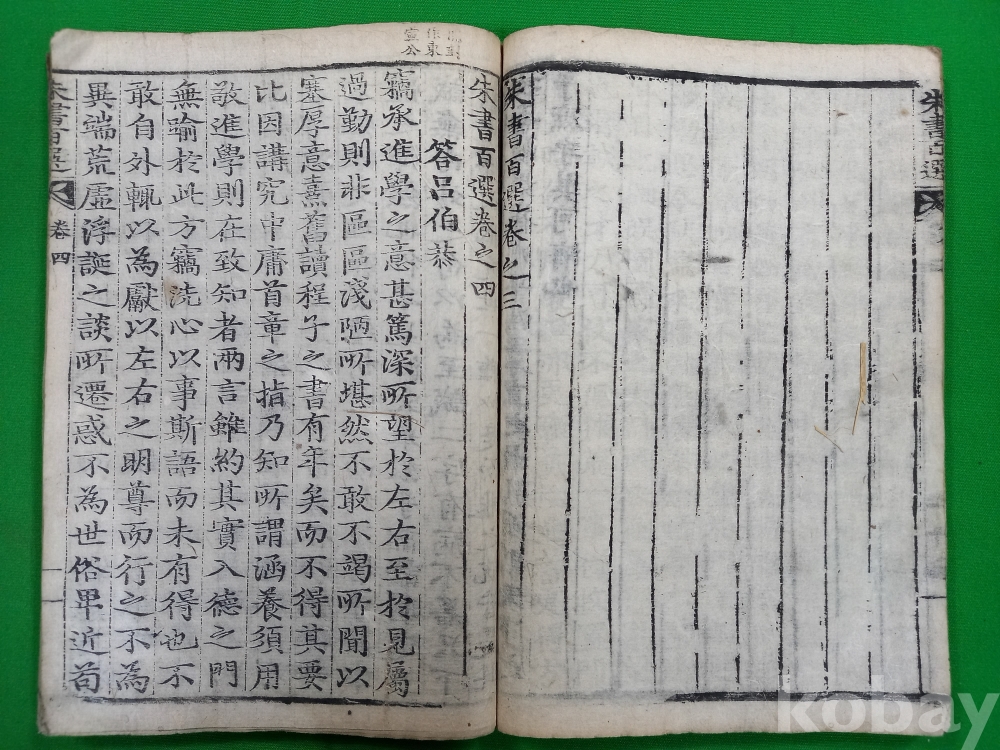 朱書百選
朱書百選卷之三
朱書百選卷之四
答呂伯恭
竊承進學之意甚篤深所望於左右至於見屬
過勤則非區區淺陋所堪然不敢不竭所聞以
塞厚意熹舊讀程子之書有年矣而不得其要
比因講究中庸首章之指乃知所謂涵養須用
敬進學則在致知者兩言雖約其實入德之門
無踰於此方竊洗心以事斯語而未有得也不
敢自外輒以為獻以左右之明尊而行之不為
異端荒虛浮誕之談所遷惑不為世俗卑近苟
朱書百選 卷四
kobay